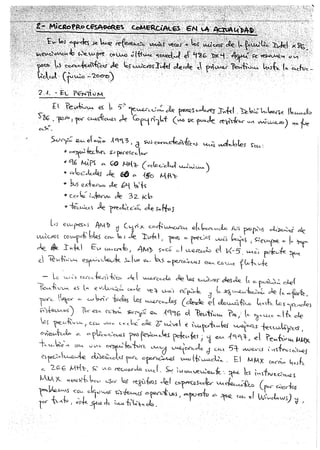 2.- MICROPROCESADORES COMERCIALES EN LA ACTUALIDAD
En los apartados se hace referencia más veces a los micros de la familia Intel x86,
mencionando siempre como último eslabón el 486 DX4. Aquí se resumen un
poco las características de los micros Intel desde el primer Pentium hasta la actua-
lidad (junio-2000)
2.1. - EL PENTIUM
El Pentium es la 5ª generación de procesadores Intel. Debía haberse llamado
586, pero, por cuestiones de Copyright (no se puede registrar un número) no fue
así.
Surgió en el año 1993, y sus características más notables son:
• arquitectura superescalar
• 96 MIPS a 60 MHz (velocidad mínima)
• velocidades de 60 a 150 MHz
• bus externo de 64 bits
• caché interna de 32 Kb
• técnicas de predicción de saltos
Las empresas AMD y Cyrix continuaron elaborando sus propios diseños de
micros compatibles con los de Intel, pero a precios más bajos, siempre a la par
de Intel. En concreto, AMD sacó al mercado el K-5, más potente que
el Pentium equivalente salvo en las operaciones en coma flotante
- La característica del mercado de los micros desde la aparición del
Pentium es la evolución cada vez más rápida y la segmentación de la oferta,
para llegar a cubrir todos los mercados (desde el doméstico hasta los grandes
sistemas). Por esa razón surgió en 1996 el Pentium Pro, la gama alta de
los pentium, con una caché de 2º nivel e importantes mejoras tecnológicas,
orientado a aplicaciones profesionales potentes, y en 1997, el Pentium MMX
también con una arquitectura muy mejorada y con 57 nuevas instrucciones
especialmente diseñadas para operaciones multimedia. El MMX corría hasta
a 266 MHz, si no recuerdo mal. Su inconveniente: que las instrucciones
MMX necesitaban usar los registros del coprocesador matemático (por ciertos
problemas con algunos sistemas operativos, apuesto a que con el Windows) y,
por tanto, éste queda inutilizado.